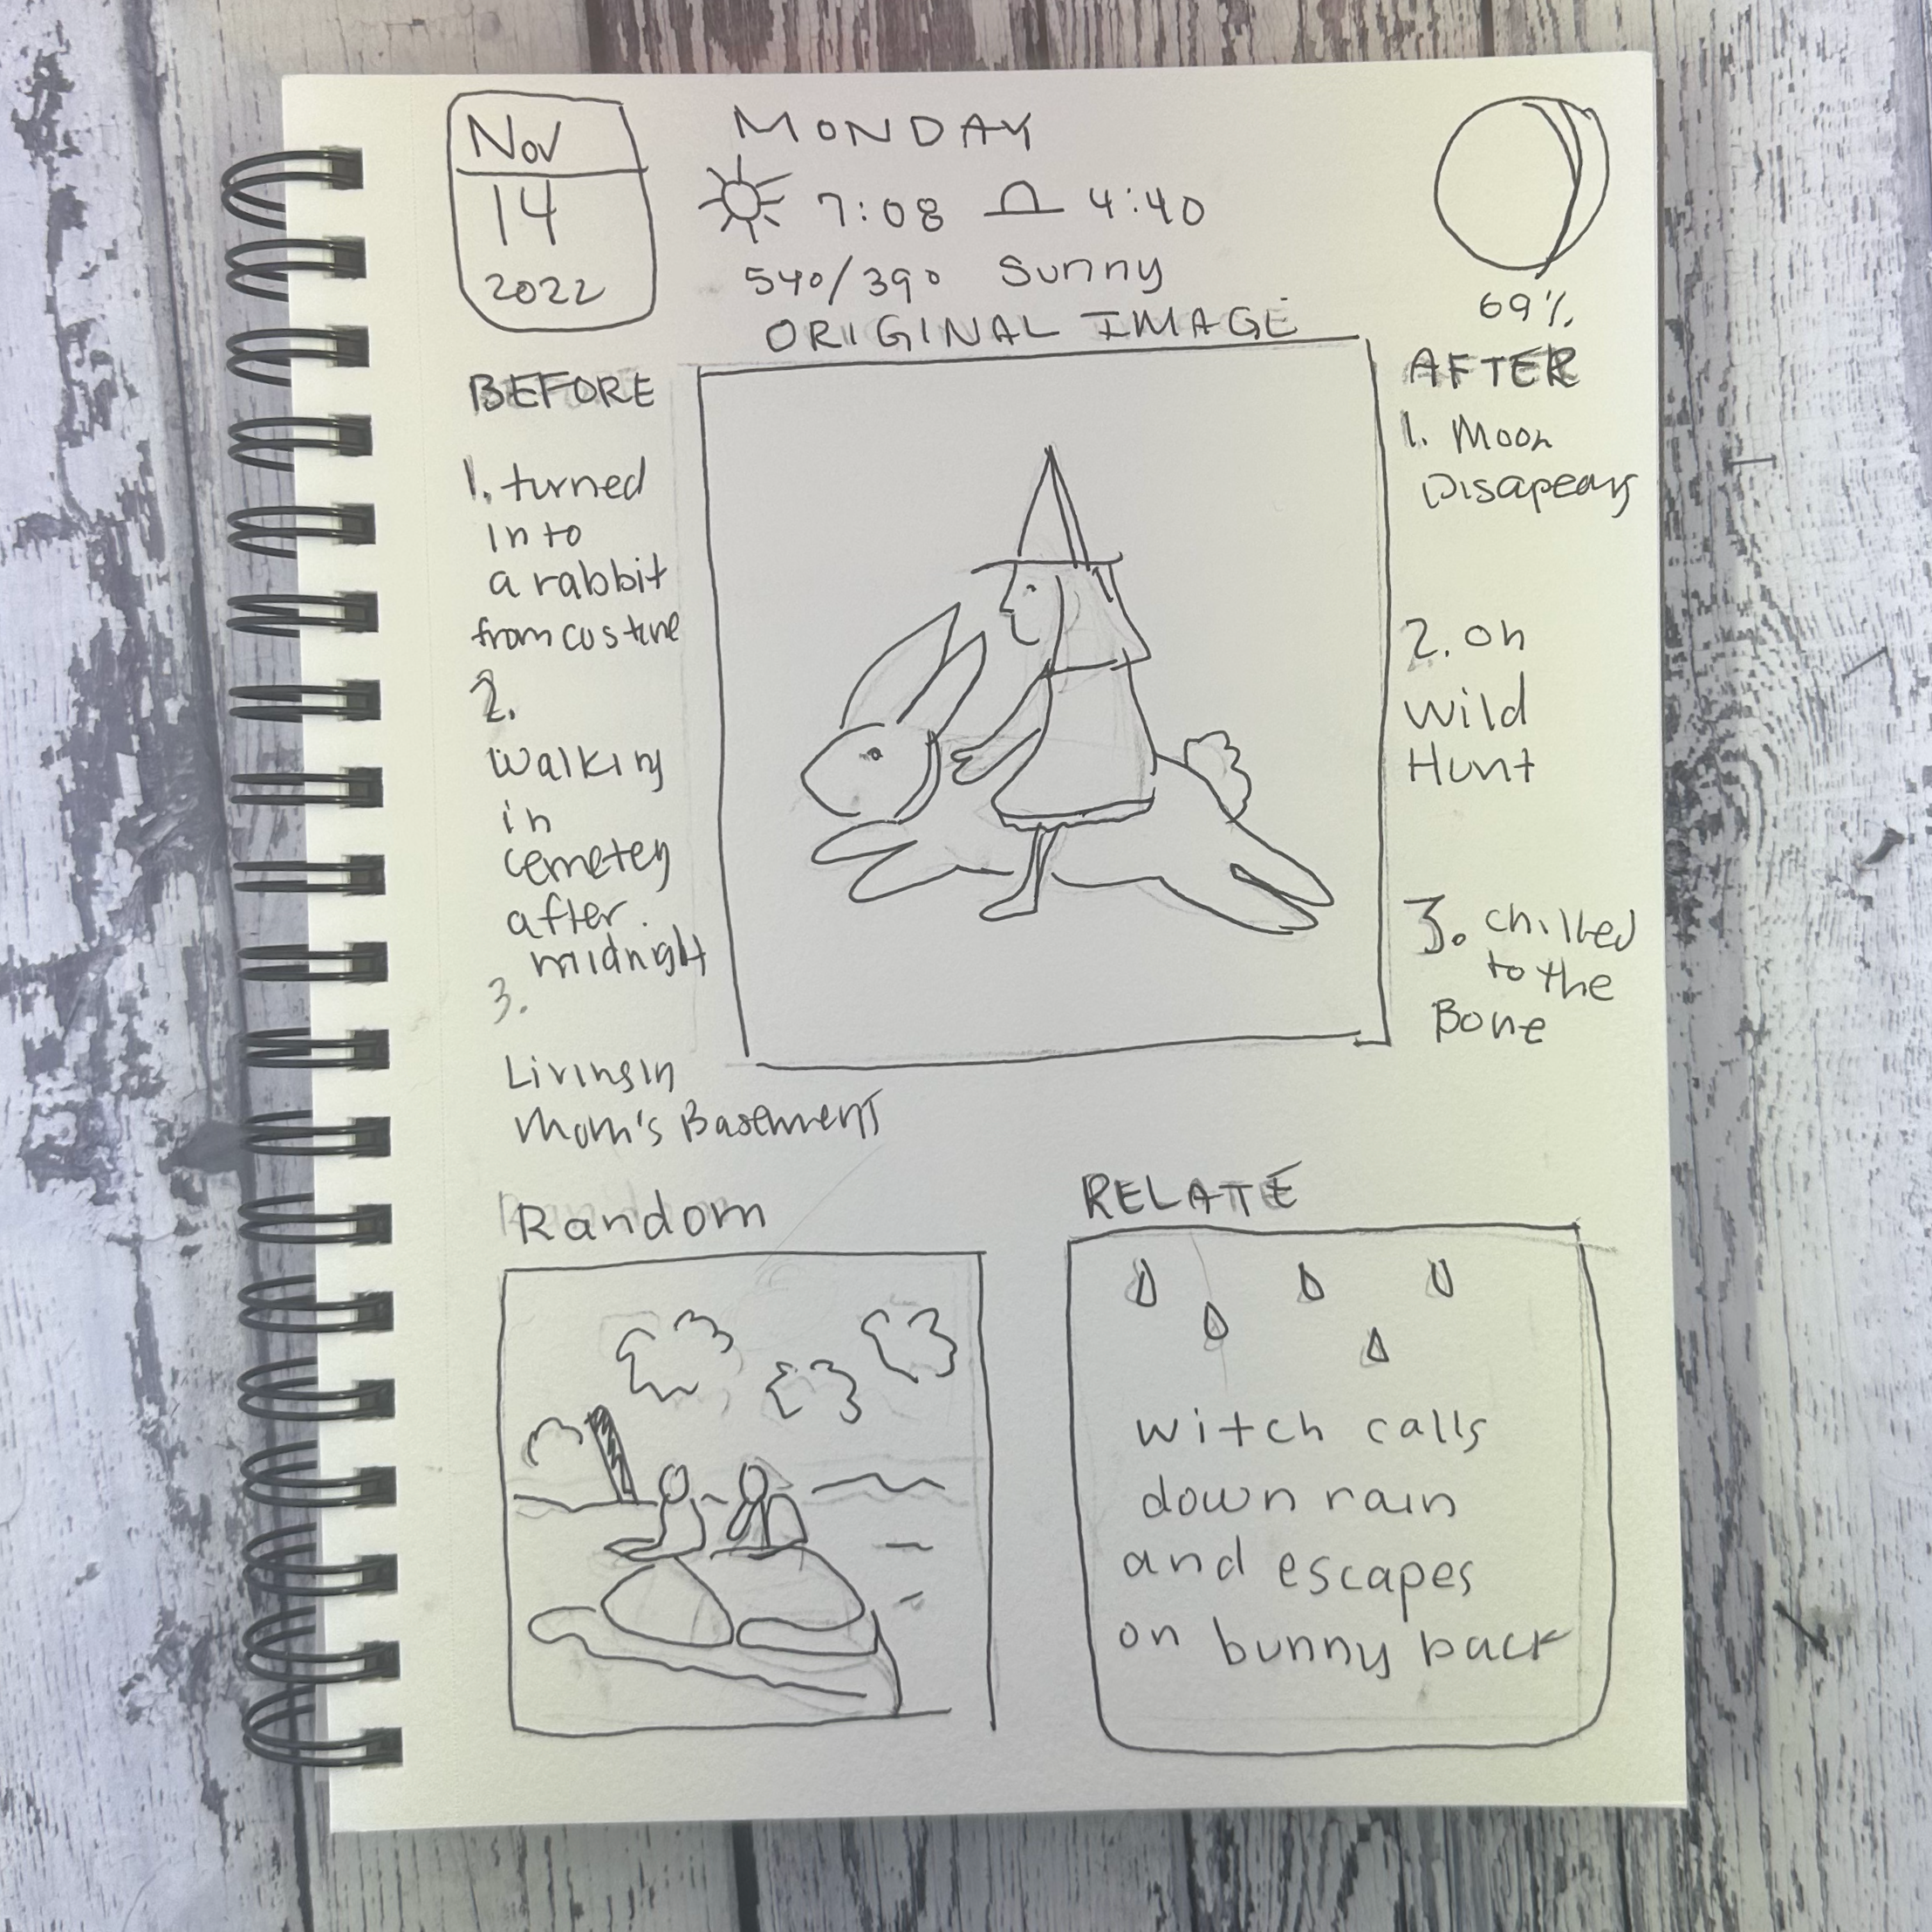 Nov
14
2022
MONDAY
7:08 4:40
54°/39° Sunny
69%
ORIGINAL IMAGE
BEFORE
1. turned
into
a rabbit
from costume
2.
Walking
in
cemetery
after
midnight
3.
Living in
Mom's Basement
AFTER
1. Moon
Disapears
2. on
Wild
Hunt
3. Chilled
to the
Bone
Random
RELATE
witch calls
down rain
and escapes
on bunny back